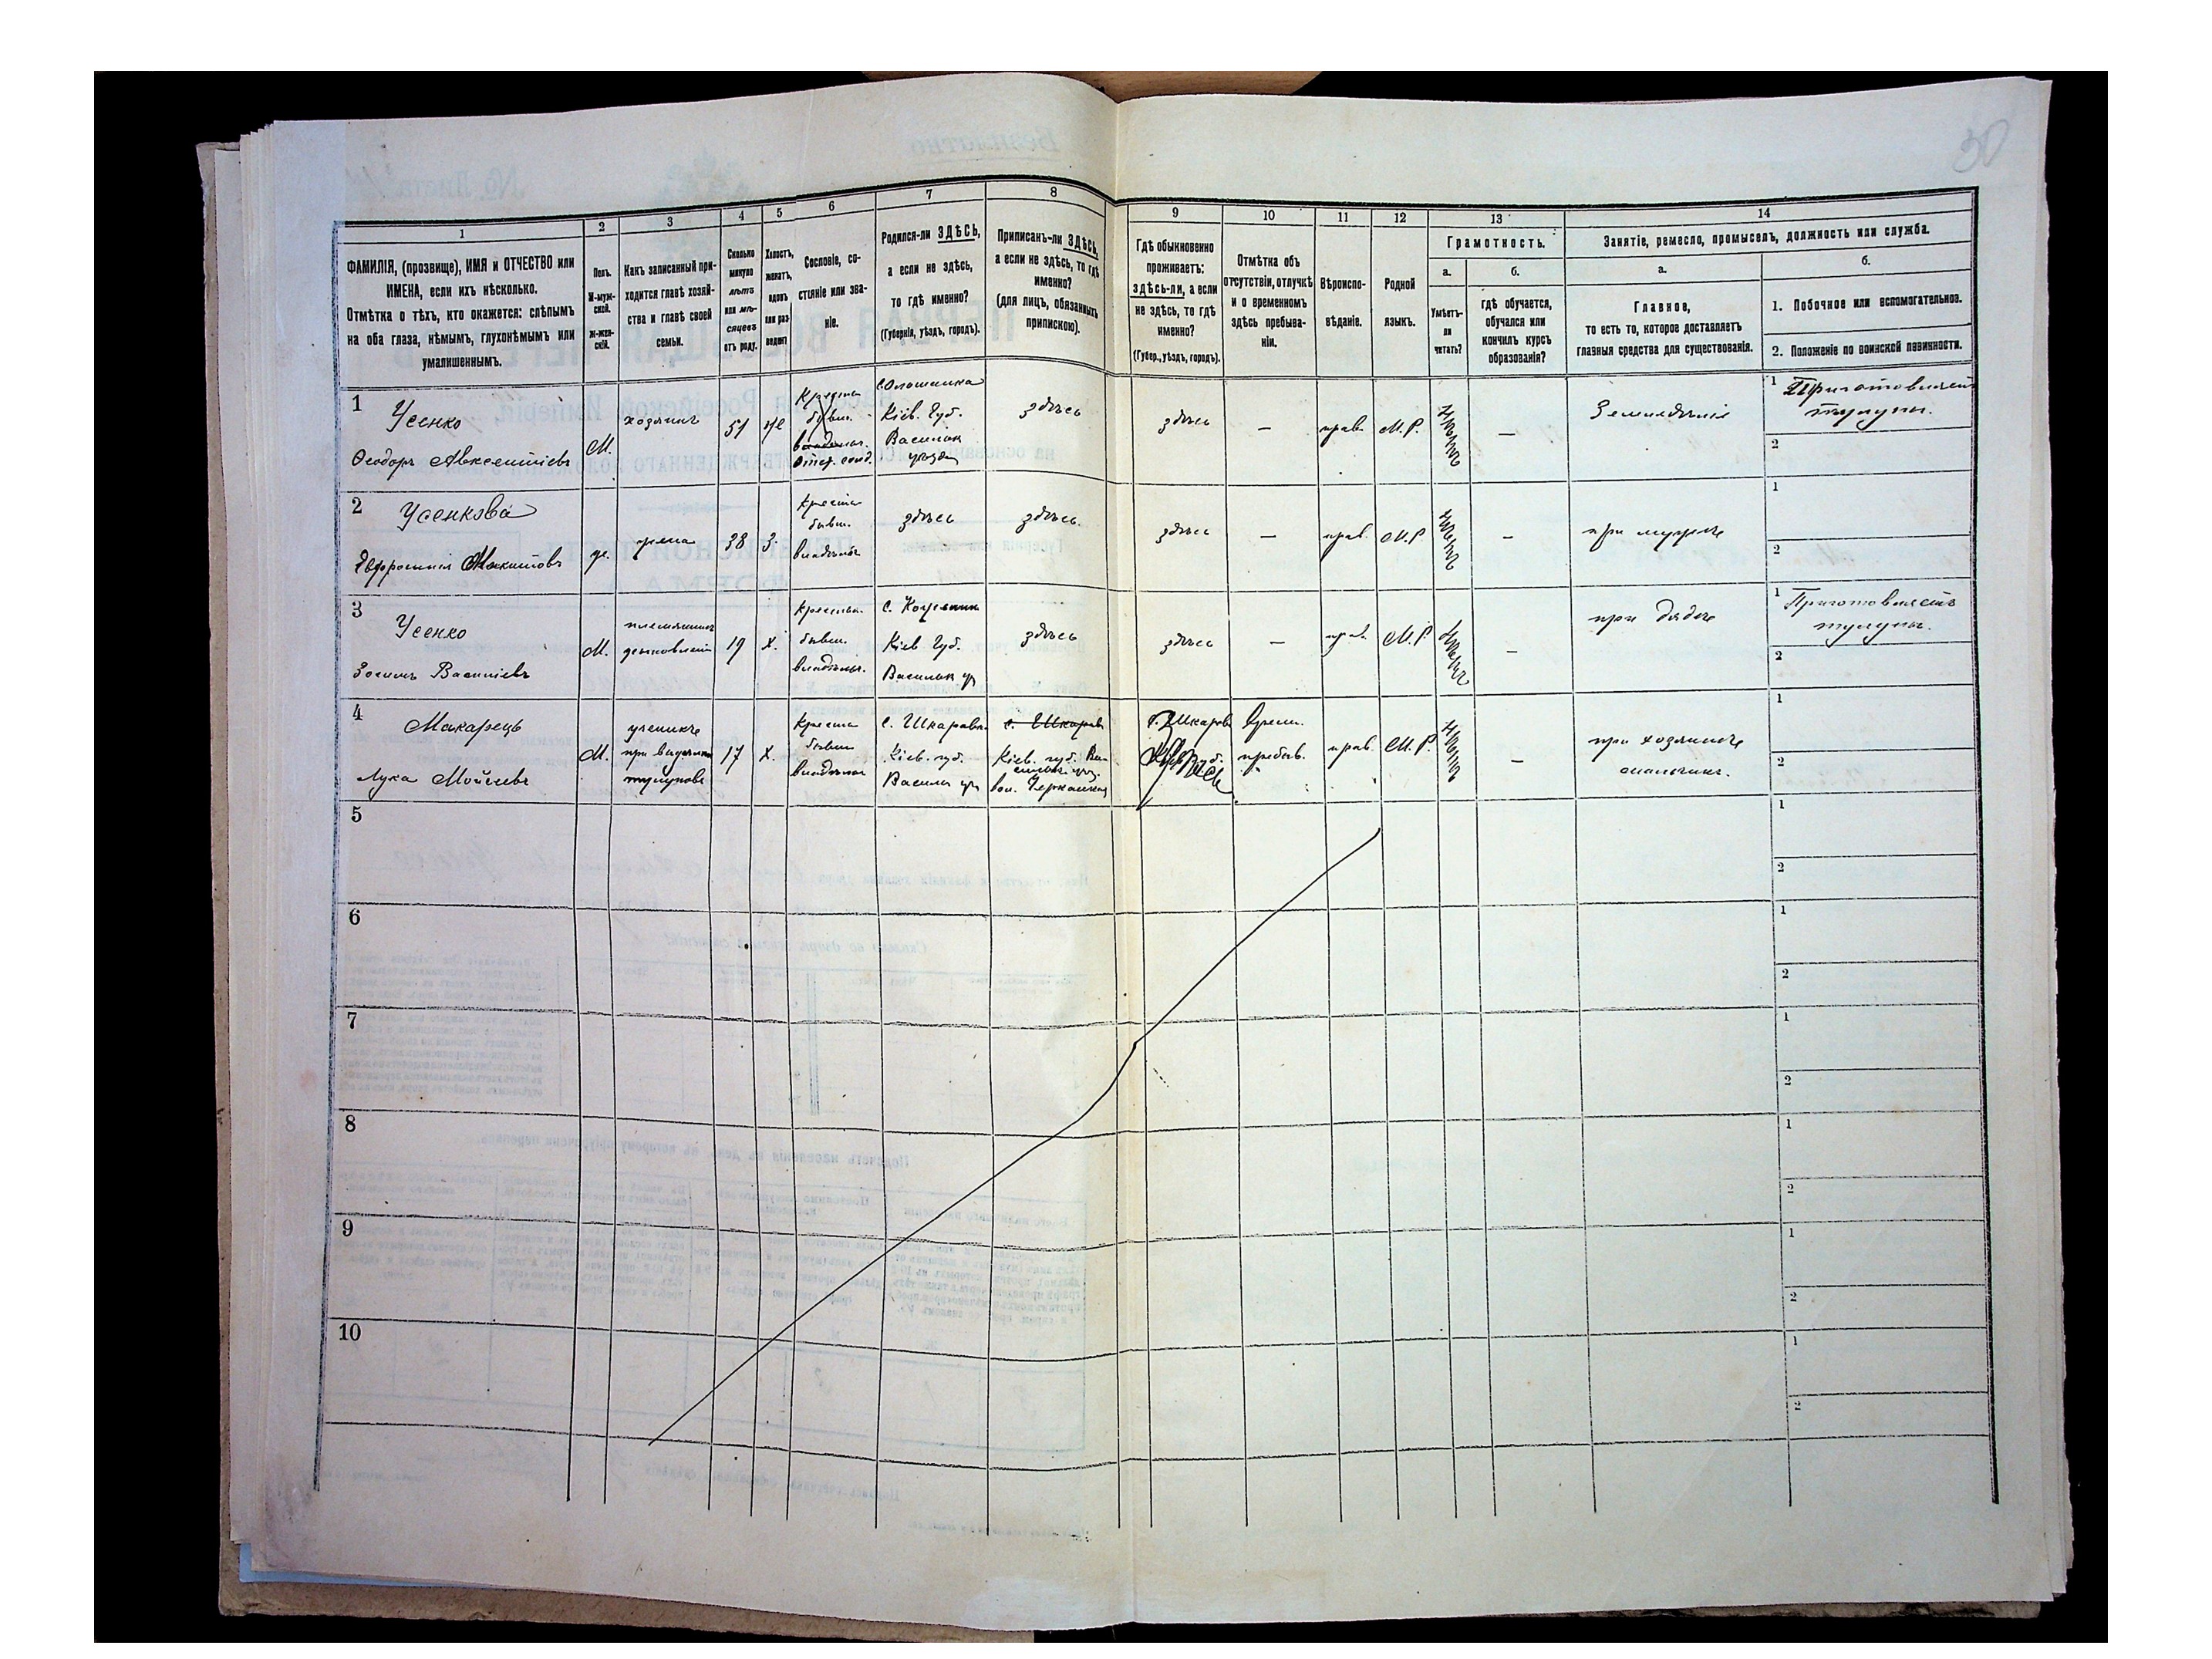 50
1 2 3 4 5 6 7 8 9 10 11 12 13 14
ФАМИЛІЯ, (прозвище), ИМЯ и ОТЧЕСТВО или
ИМЕНА, если ихъ нѣсколько.
Отмѣтка о тѣхъ, кто окажется: слѣпымъ
на оба глаза, нѣмымъ, глухонѣмымъ или
умалишеннымъ.
Полъ.
М-муж-
ской.
Ж-жен-
скій.
Какъ записанный при-
ходится главѣ хозяй-
ства и главѣ своей
семьи.
Сколько
минуло
лѣтъ
или мѣ-
сяцевъ
отъ роду.
Холостъ,
женатъ,
вдовъ
или раз-
веденъ
Сословіе, со-
стояніе или зва-
ніе.
Родился-ли ЗДѢСЬ,
а если не здѣсь,
то гдѣ именно?
(Губернія, уѣздъ, городъ).
Приписанъ-ли ЗДѢСЬ,
а если не здѣсь, то гдѣ
именно?
(для лицъ, обязанныхъ
припискою).
Гдѣ обыкновенно
проживаетъ:
ЗДѢСЬ-ли, а если
не здѣсь, то гдѣ
именно?
(Губер., уѣздъ, городъ).
Отмѣтка объ
отсутствіи, отлучкѣ
и о временномъ
здѣсь пребыва-
ніи.
Вѣроиспо-
вѣданіе.
Родной
языкъ.
Грамотность.
а.
Умѣетъ-
ли
читать?
б.
гдѣ обучается,
обучался или
кончилъ курсъ
образованія?
Занятіе, ремесло, промыселъ, должность или служба.
а.
Главное,
то есть то, которое доставляетъ
главныя средства для существованія.
б.
1. Побочное или вспомогательное.
2. Положеніе по воинской повинности.
1
Усенко
Ѳеодоръ Авксентіевъ
М.
хозяинъ
51
Ж
Отст. солд.
Кіев. Губ.
Васильк
уѣзда
здѣсь
здѣсь
—
прав.
М.Р.
нѣтъ
—
Земледѣліе
1 Приготовляетъ
тулупы.
2
2
Усенкова
Евфросинія Никитовъ
ж.
жена
38
З.
Крестья
бывш.
владѣльч
здѣсь
здѣсь.
здѣсь
—
прав.
М.Р.
нѣтъ
—
при мужѣ
1
2
3
Усенко
Зосимъ Василіевъ
М.
племянникъ
19
Х.
Крестьян.
бывш.
владѣльч.
Кіев. Губ.
Васильк у
здѣсь
здѣсь
—
прав.
М.Р.
нѣтъ
—
при дядѣ
1 Приготовляетъ
тулупы.
2
4
Макарецъ
Лука Моисеевъ
М.
ученикъ
при выдѣлкѣ
тулуповъ
17
Х.
Крестья
бывш
владѣльч
с. Шкаровк.
Кіев. губ.
Васильк у
с. Шкаров
Кіев. губ. Ва-
сильк. у.
с. Шкаров
Врем.
пребыв.
прав.
М.Р.
нѣтъ
—
при хозяинѣ
1
2
5
1
2
6
1
2
7
1
2
8
1
2
9
1
2
10
1
2